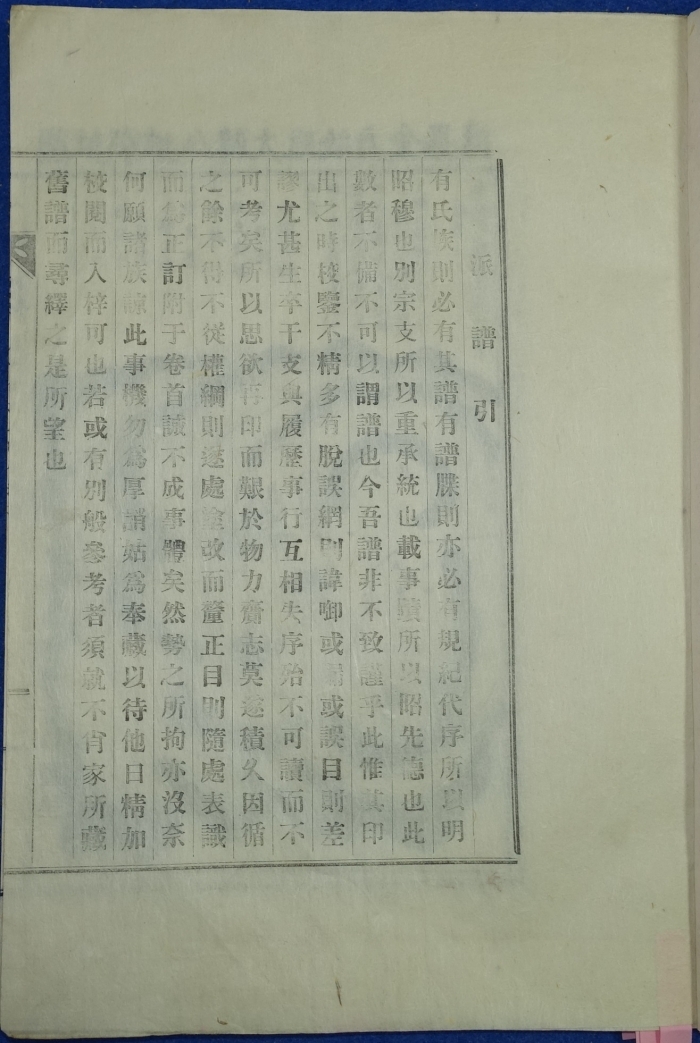 派譜引
有氏族則必有其譜有譜牒則亦必有規紀代序所以明
昭穆也別宗支所以重承統也載事蹟所以昭先德也此
數者不備不可以謂譜也今吾譜非不致謹乎此惟其印
出之時校鑒不精多有脫誤綱則諱啣或漏或誤目則差
謬尤甚生卒干支與履歷事行互相失序殆不可讀而不
可考矣所以思欲再印而艱於物力齎志莫遂積久因循
之餘不得不從權綱則逐處塗改而釐正目則隨處表識
而爲正訂附于卷首誠不成事體矣然勢之所拘亦沒奈
何願諸族諒此事機勿爲厚誚姑爲奉藏以待他日精加
校閱而入梓可也若或有別般參考者須就不肖家所藏
舊譜而尋繹之是所望也